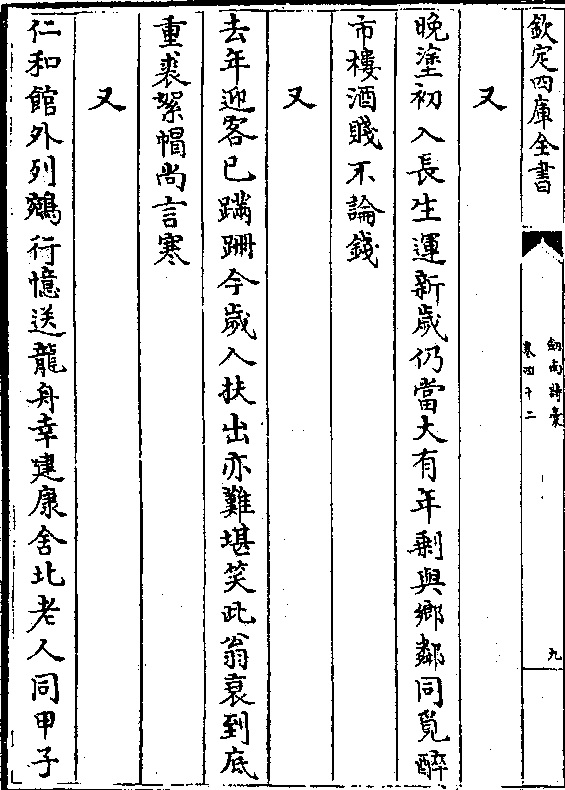 欽定四庫全書
劒南詩稾
卷四十二
九
又
晚塗初入長生運新歲仍當大有年剩與鄉鄰同覓醉
市樓酒賤不論錢
又
去年迎客已蹣跚今歲人扶出亦難堪笑此翁衰到底
重裘絮帽尚言寒
又
仁和館外列鵷行憶送龍舟幸建康舍北老人同甲子